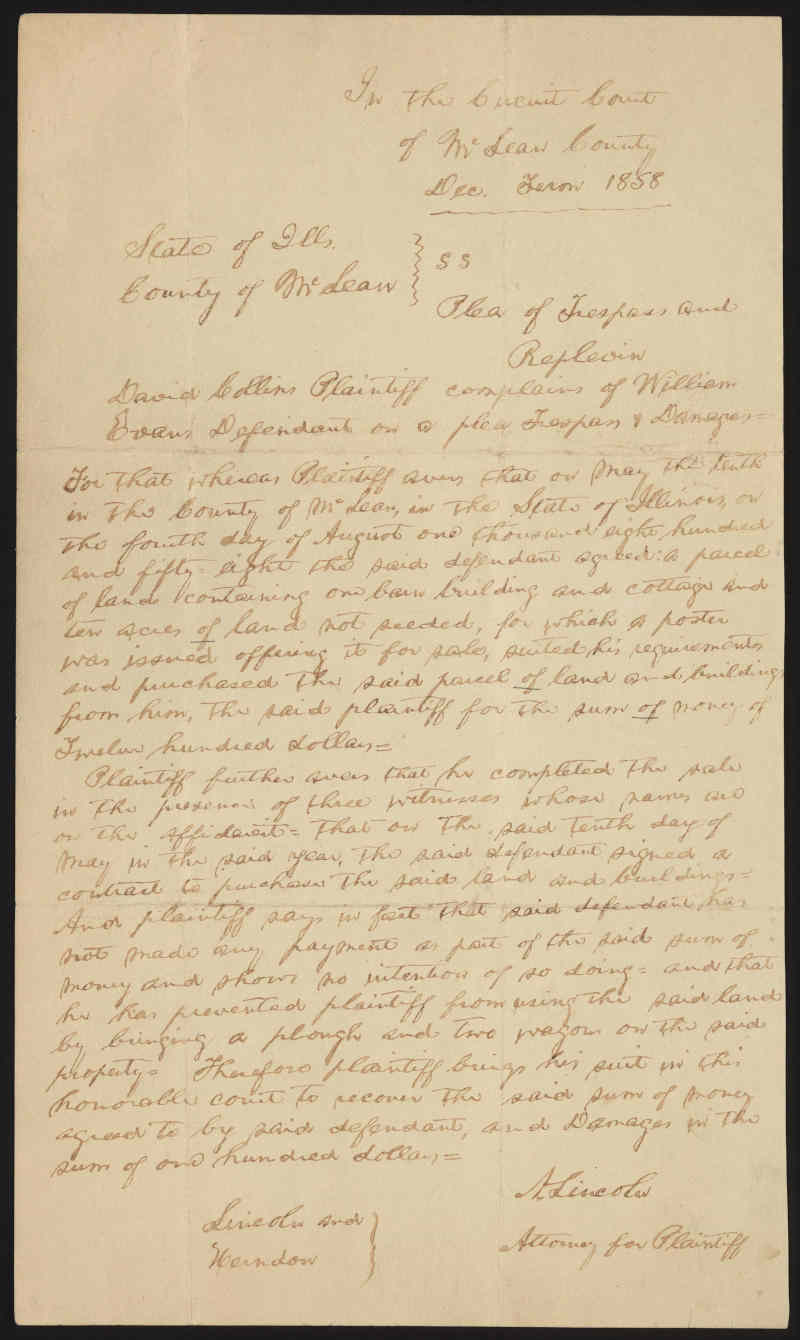 In the Circuit Court
of Mc Lean County
Dec. Term 1858
State of Ills.
County of Mc Lean } S S
Plea of Trespass and
Replevin
David Collins Plaintiff complains of William
Evans Defendant on a plea Trespass & Damages=
For that whereas Plaintiff avers that on May the tenth
in the County of Mc Lean, in the State of Illinois, on
the fourth day of August one thousand eight hundred
and fifty-eight the said defendant agreed: a parcel
of land containing one barn building and cottage and
ten acres of land not seeded, for which a poster
was issued offering it for sale, suited his requirements
and purchased the said parcel of land and buildings
from him, the said plaintiff for the sum of money of
Twelve hundred dollars=
Plaintiff further avers that he completed the sale
in the presence of three witnesses whose names are
on the affidavit= that on the said tenth day of
May in the said year, the said defendant signed a
contract to purchase the said land and buildings=
And plaintiff says in fact that said defendant has
not made any payment as part of the said sum of
money and shows no intention of so doing= and that
he has prevented plaintiff from using the said land
by bringing a plough and two wagons on the said
property= Therefore plaintiff brings his suit in this
honorable court to recover the said sum of money
agreed to by said defendant, and Damages in the
sum of one hundred dollars=
A. Lincoln
Lincoln and
Herndon }
Attorney for Plaintiff